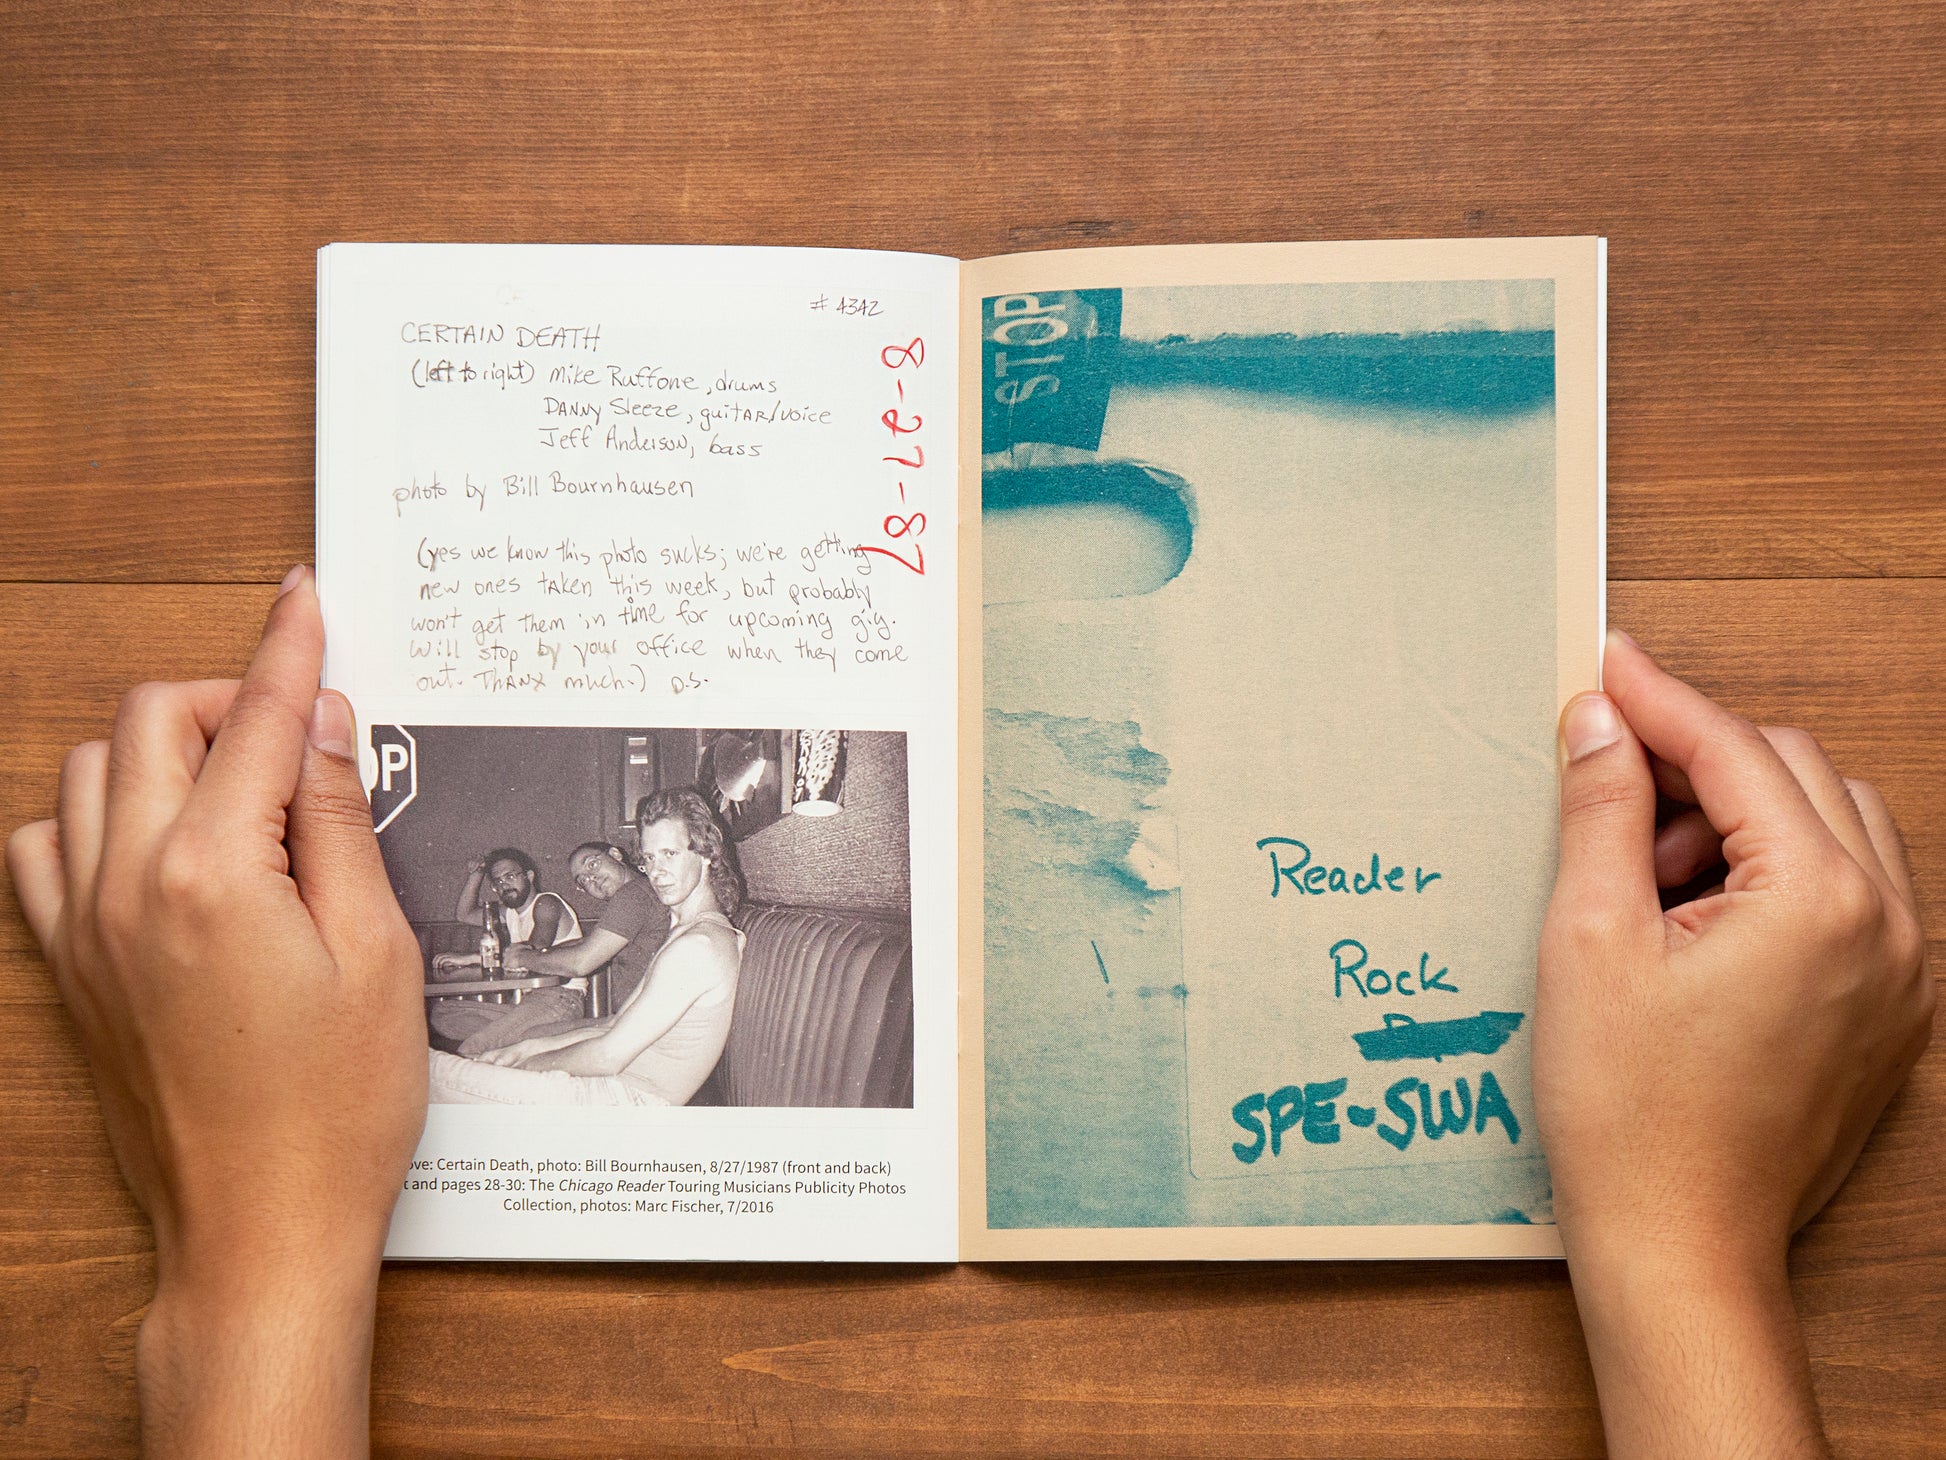 # 4342
CERTAIN DEATH
(left to right) Mike Ruffone, drums
DANNY Sleeze, guitar/voice
Jeff Anderson, bass
photo by Bill Bournhausen
(yes we know this photo sucks; we're getting
new ones taken this week, but probably
won't get them in time for upcoming gig.
Will stop by your office when they come
out. THANX much.) D.S.
8-27-87
OP
ove: Certain Death, photo: Bill Bournhausen, 8/27/1987 (front and back)
t and pages 28-30: The Chicago Reader Touring Musicians Publicity Photos
Collection, photos: Marc Fischer, 7/2016
STOP
Reader
Rock
SPE-SWA